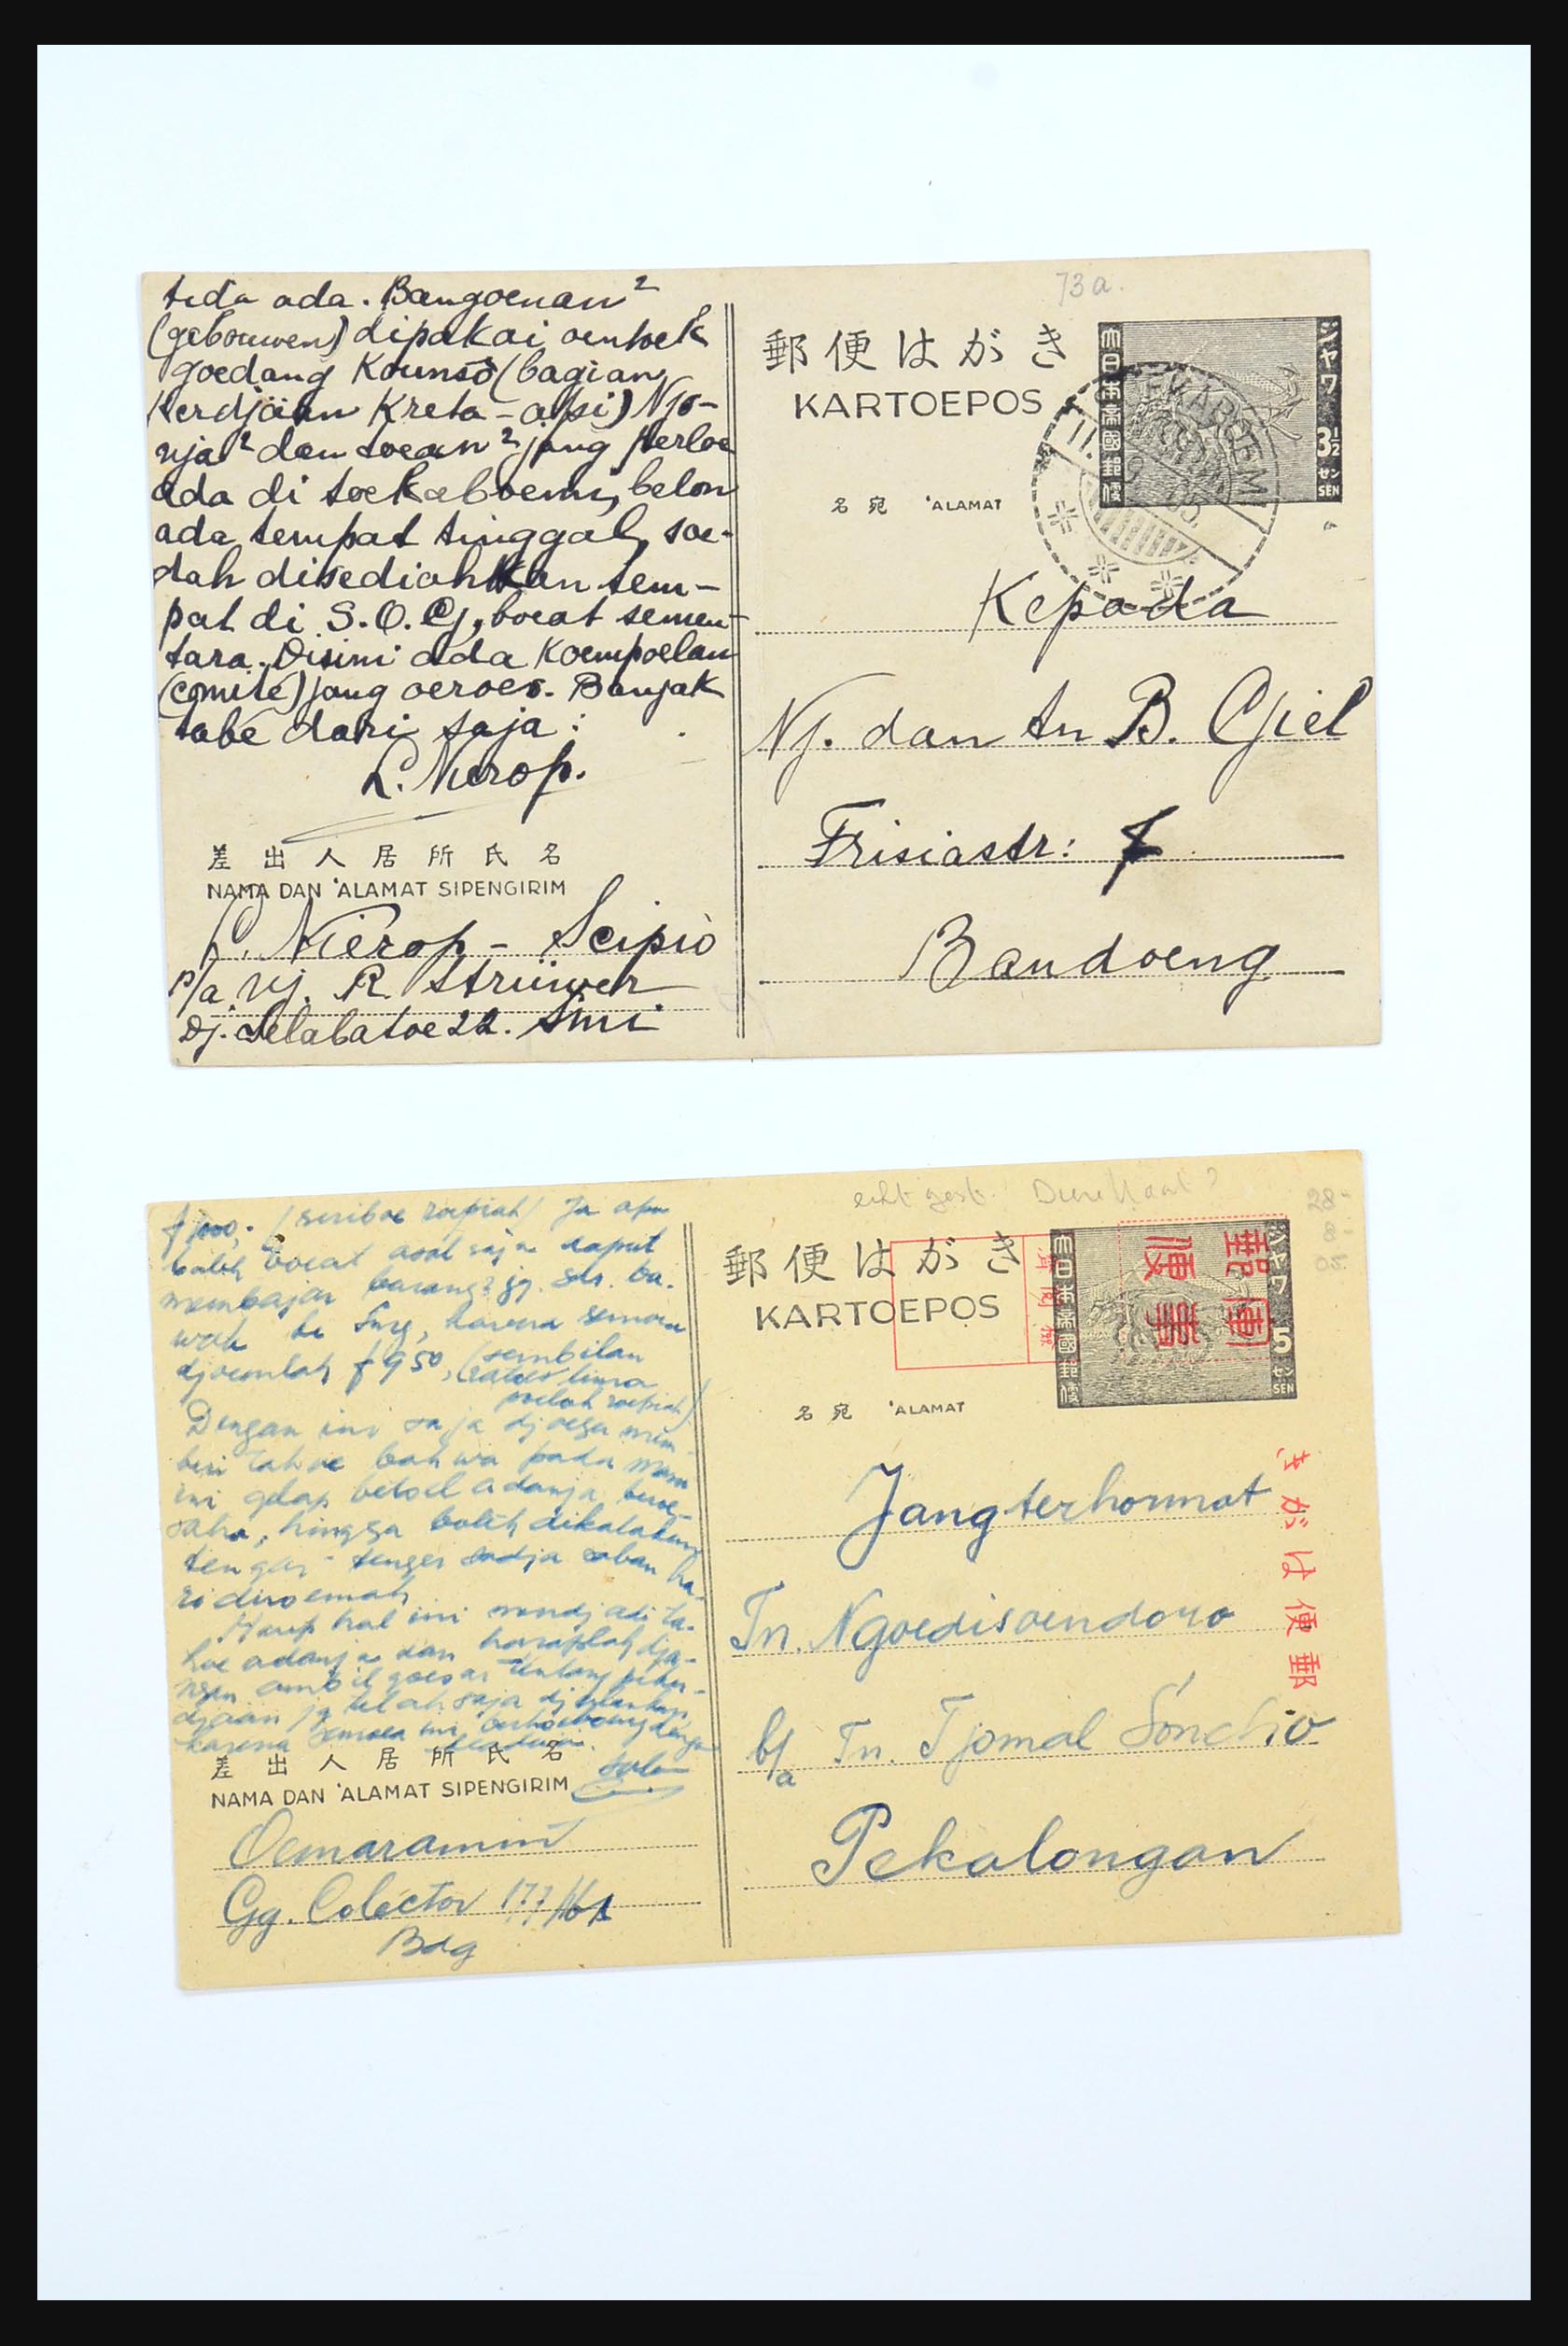 tida ada. Bangoenan²
(gebouwen) dipakai oentoek
goedang Kounsō (bagian
Kerdjäan Kreta-api) Njo-
nja² dan toean² jang perloe
ada di Soekaboemi, belon
ada tempat tinggal, soe-
dah disediahkan tem-
pat di S.O.G, boeat semen-
tara. Disini ada Koempoelan
(comité) jang oeroes. Banjak
tabé dari saja:
L. Nierop.
差出人居所氏名
NAMA DAN 'ALAMAT SIPENGIRIM
L. Nierop - Scipio
p/a Nj. R. Strüwer
Dj. Selabatoe 22. Smi
73a.
郵便はがき
KARTOEPOS
大日本帝國郵便
ジャワ
3½
セン
SEN
名宛 'ALAMAT
Kepada
Nj. dan tn B. Giel
Frisiastr: 7
Bandoeng
(seriboe roepiah) Ja apa
boleh boeat asal saja dapat
membajar barang2 jg. sdr. ba-
wak ke Smg, karena semoea
djoemlah f 950, (sembilan
ratoes lima
poeloh roepiah)
Dengan ini saja djoega mem-
beri tahoe bahwa pada masa
ini gelap betoel adanja beroe-
saha, hingga boleh dikatakan
tenger-tenger sadja saban ha-
ri diroemah
Harap hal ini mendjadi ta-
hoe adanja dan haraplah dja-
ngan ambil goesar tentang peker-
djaan jg telah saja djalankan
karena semoea ini berhoeboeng dengan
差出人居所氏名
NAMA DAN 'ALAMAT SIPENGIRIM
Oemaramin
Gg. Colèctor 177/
Bdg
echt gest.
28-
8-
05.
郵便はがき
KARTOEPOS
大日本帝國郵便
ジャワ
5
セン
SEN
名宛 'ALAMAT
郵便はがき
Jang terhormat
Tn. Ngoedisoendoro
b/a Tn. Tjomal Sónchio
Pekalongan